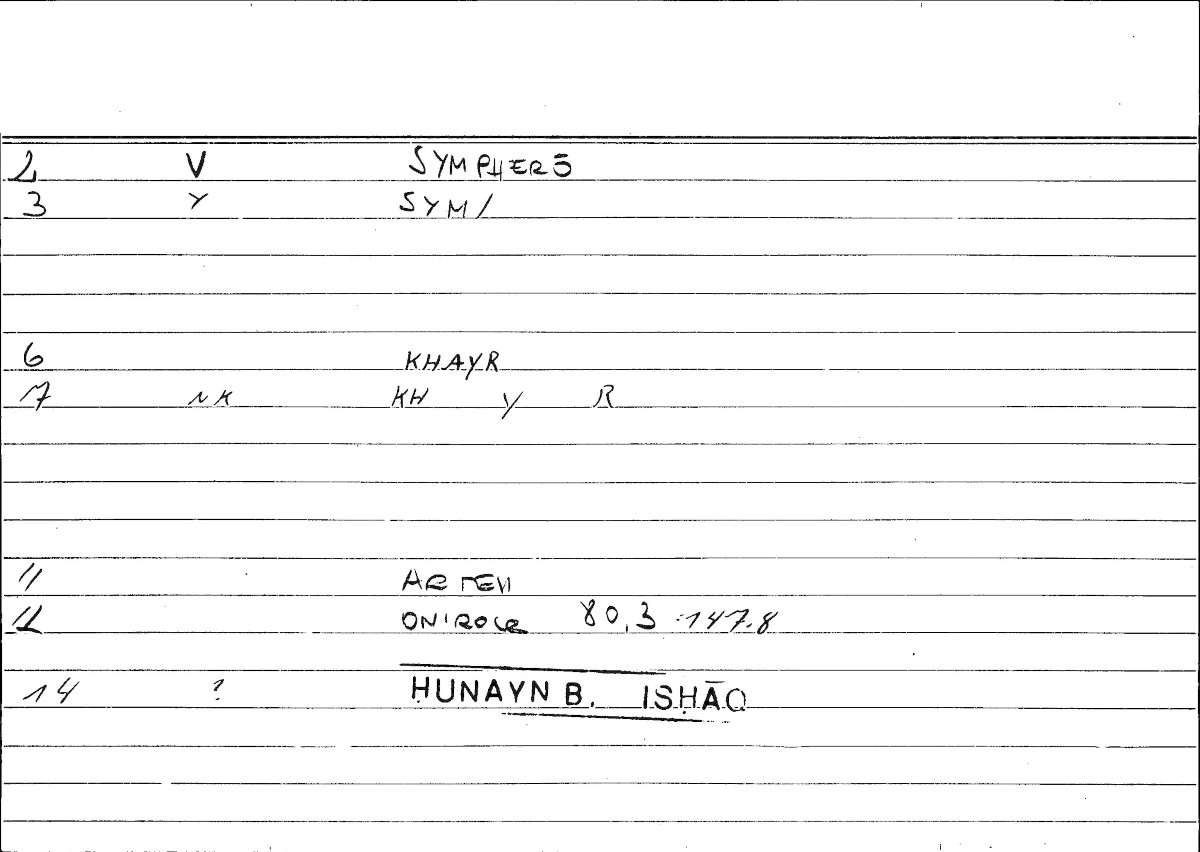 2 V SYMPHERŌ
3 Y SYM/
6 KHAYR
7 NK KH Y R
11 ARTEM
12 ONIROCR 80,3 147.8
14 ? ḤUNAYN B. ISḤĀQ